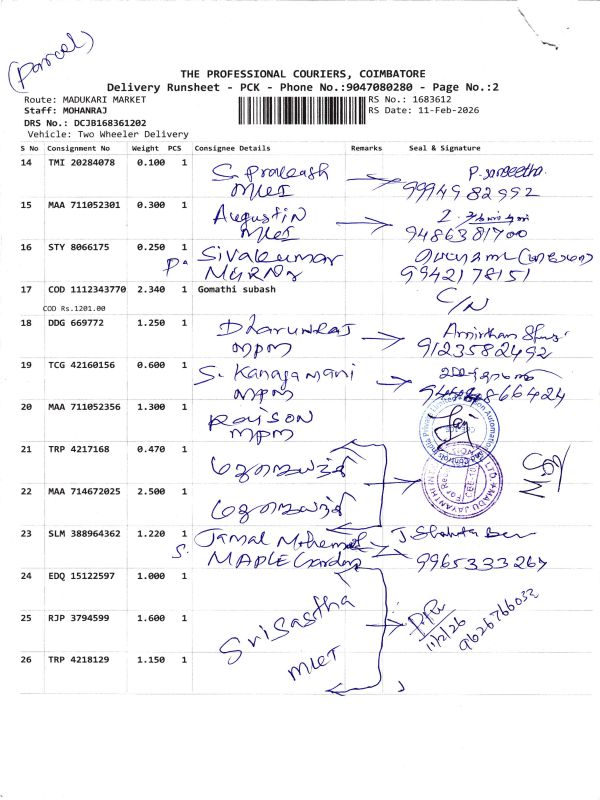 (Parcel)
THE PROFESSIONAL COURIERS, COIMBATORE
Delivery Runsheet - PCK - Phone No.:9047080280 - Page No.:2
Route: MADUKARI MARKET
RS No.: 1683612
Staff: MOHANRAJ
RS Date: 11-Feb-2026
DRS No.: DCJB168361202
Vehicle: Two Wheeler Delivery
S No Consignment No Weight PCS Consignee Details Remarks Seal & Signature
14 TMI 20284078 0.100 1 S. Prakash P. Sangeetha
MKT 9994982992
15 MAA 711052301 0.300 1 Augustin
MKT 9486381700
16 STY 8066175 0.250 1 Sivakumar
9942178151
17 COD 1112343770 2.340 1 Gomathi subash C/N
COD Rs.1201.00
18 DDG 669772 1.250 1 Dharunraj
MPM 9123582492
19 TCG 42160156 0.600 1 S. Kanagamani
MPM
20 MAA 711052356 1.300 1 Raison
MPM
21 TRP 4217168 0.470 1
22 MAA 714672025 2.500 1
23 SLM 388964362 1.220 1 Jamal Mohemed
MAPLE Garden 9965333267
24 EDQ 15122597 1.000 1
25 RJP 3794599 1.600 1 Sri Sastha 11/2/26 9626766032
MKT
26 TRP 4218129 1.150 1